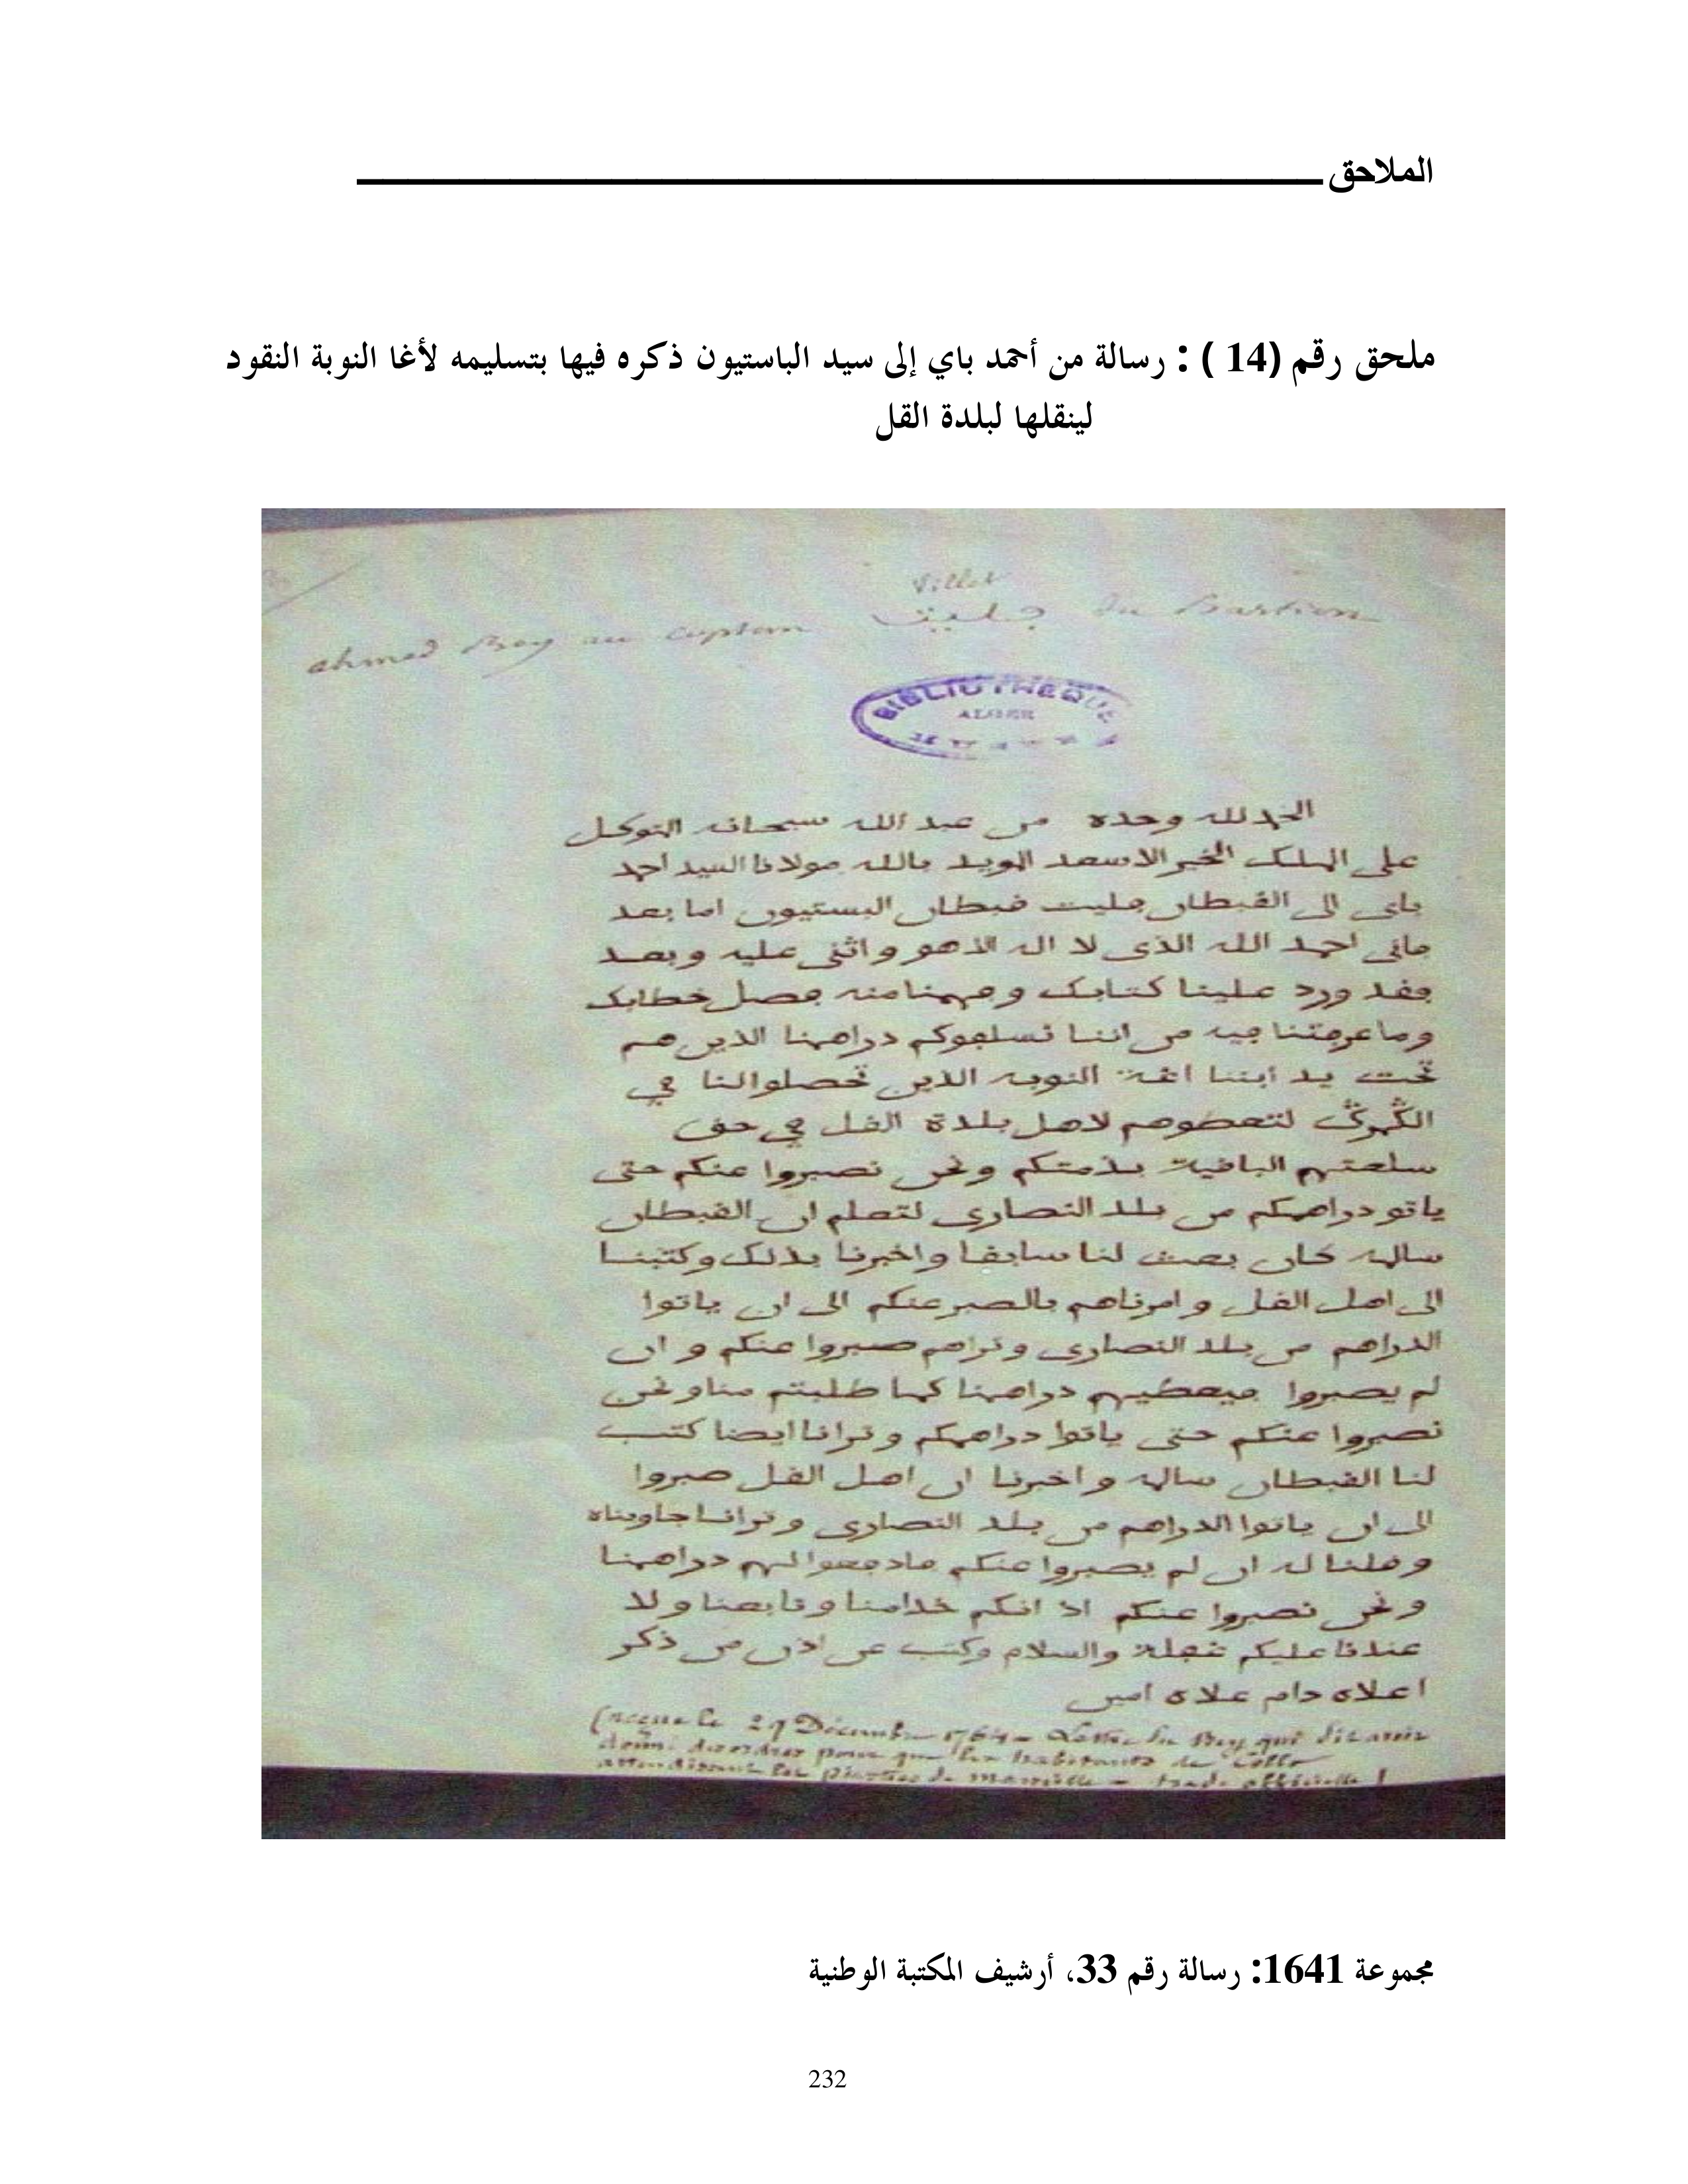 الملاحق
ملحق رقم (14 ) : رسالة من أحمد باي إلى سيد الباستيون ذكره فيها بتسليمه لأغا النوبة النقود
لينقلها لبلدة القل
Villet
ahmed Bey au captain جليت du Bastion
BIBLIOTHEQUE
ALGER
الحمد لله وحده من عبد الله سبحانه المتوكل
على الملك الخير الاسعد المويد بالله مولانا السيد احمد
باي الى القبطان جليت قبطان البستيون اما بعد
فاني احمد الله الذي لا اله الا هو واثني عليه وبعد
فقد ورد علينا كتابك وفهمنا منه فصل خطابك
وما عرفتنا فيه من اننا نسلفوكم دراهمنا الذين هم
تحت يد ابننا اغة النوبة الذين تحصلوا لنا في
لتعطوهم لاهل بلدة القل في حق
سلعتهم الباقية بذمتكم ونحن نصبروا عنكم حتى
ياتو دراهمكم من بلد النصارى لتعلم ان القبطان
كان بعث لنا سابقا واخبرنا بذلك وكتبنا
الى اهل القل وامرناهم بالصبر عنكم الى ان ياتوا
الدراهم من بلد النصارى وتراهم صبروا عنكم وان
لم يصبروا فيعطيهم دراهمنا كما طلبتم منا ونحن
نصبروا عنكم حتى ياتوا دراهمكم وترانا ايضا كتب
لنا القبطان واخبرنا ان اهل القل صبروا
الى ان ياتوا الدراهم من بلد النصارى وترانا جاوبناه
وقلنا له ان لم يصبروا عنكم فادفعوا لهم دراهمنا
ونحن نصبروا عنكم اذ انكم خدامنا وتابعنا ولا
عندنا عليكم غفلة والسلام وكتب عن اذن من ذكر
اعلاه دام علاه امين
(reçue le 29 Décembre 1764 - Lettre du Bey qui dit avoir
donné des ordres pour que les habitants de Collo
attendissent les piastres de Marseille - trad. officielle)
مجموعة 1641: رسالة رقم 33، أرشيف المكتبة الوطنية
232